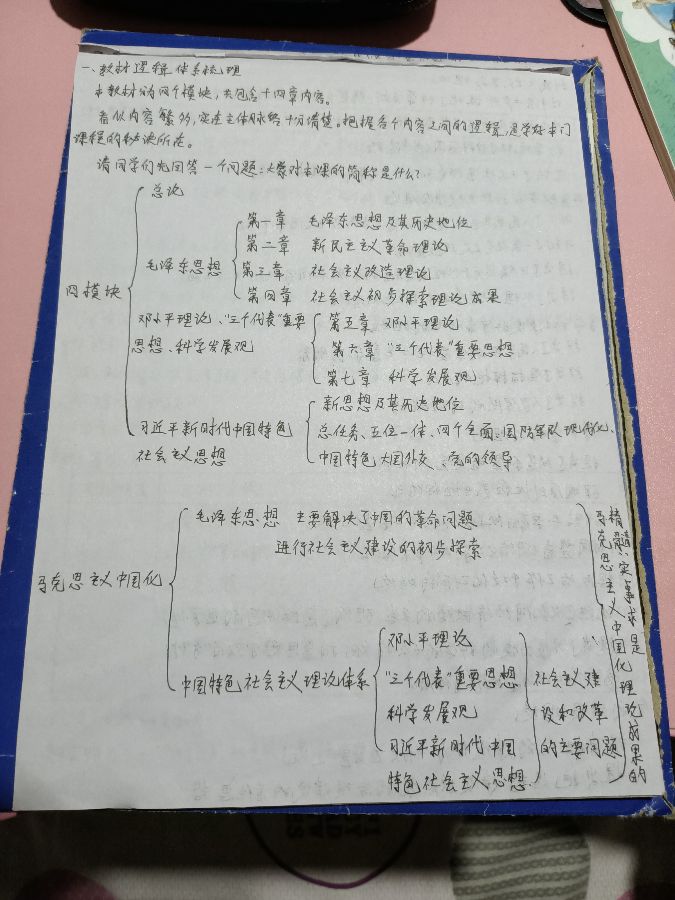 一、教材逻辑体系梳理
本教材的四个模块,共包含十四章内容。
看似内容繁多,实在主体脉络十分清楚。把握各个内容之间的逻辑,是学好本门
课程的秘诀所在。
请同学们先回答一个问题:大家对本课的简称是什么?
四模块
总论
毛泽东思想
第一章 毛泽东思想及其历史地位
第二章 新民主主义革命理论
第三章 社会主义改造理论
第四章 社会主义初步探索理论成果
邓小平理论、“三个代表”重要
思想、科学发展观
第五章 邓小平理论
第六章 “三个代表”重要思想
第七章 科学发展观
习近平新时代中国特色
社会主义思想
新思想及其历史地位
总任务、五位一体、四个全面、国防军队现代化、
中国特色大国外交、党的领导
马克思主义中国化
毛泽东思想 主要解决了中国的革命问题
进行社会主义建设的初步探索
中国特色社会主义理论体系
邓小平理论
“三个代表”重要思想
科学发展观
习近平新时代中国
特色社会主义思想.
社会主义建
设和改革
的主要问题
马克思主义中国化理论成果的
精髓:实事求是